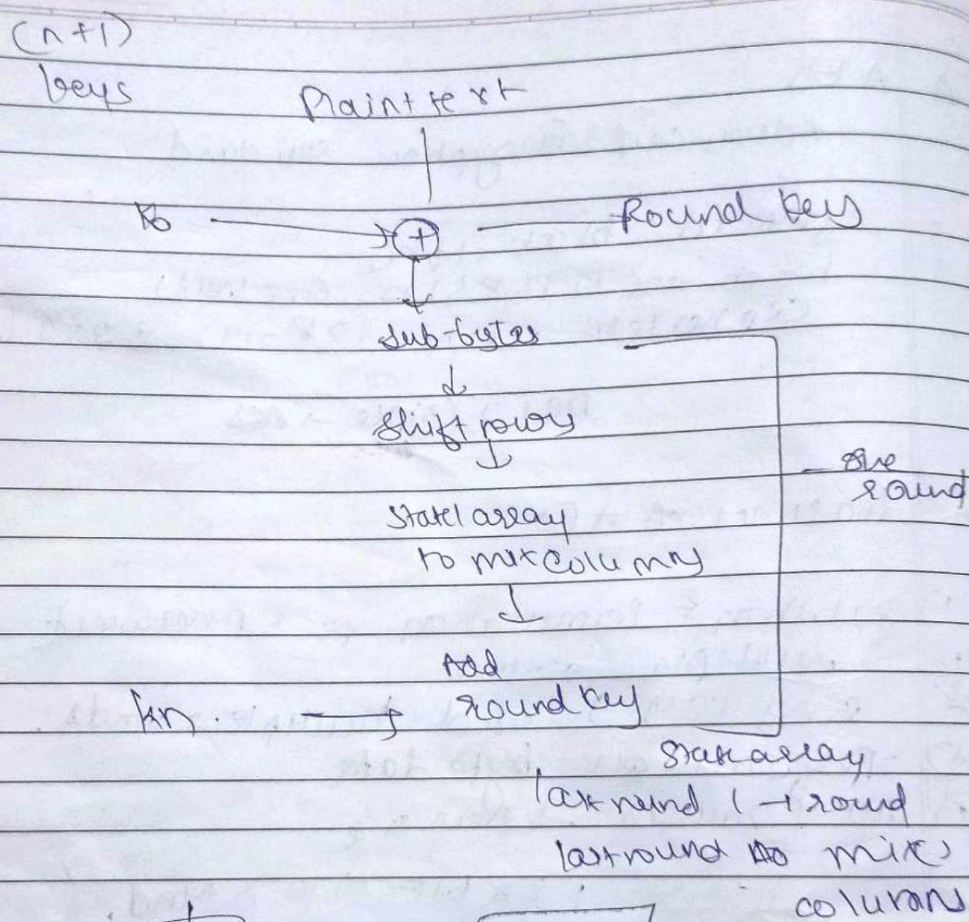 (n+1)
keys
Plaintext
k0 + Round key
Sub-bytes
Shift rows
one
round
State array
to mix columns
Add
kn. round key
State array
last round (→ round
last round no mix
columns